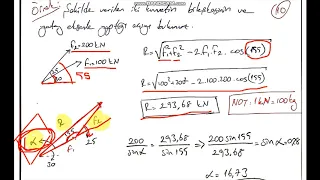 Örnek: Şekilde verilen iki kuvvetin bileşkesinin ve
yatay eksenle yaptığı açıyı bulunuz.
F₂=200 kN
F₁=100 kN
30
55
R=√F₁²+F₂²-2F₁F₂.cos(155)
R=√100²+200²-2.100.200.cos(155)
R= 293,68 kN
NOT: 1kN=100kg
R
F₂
α
F₁
25
30
200/sinα = 293,68/sin155 ⇒ 200 sin155/293,68 = sinα=0,28
α = 16,73